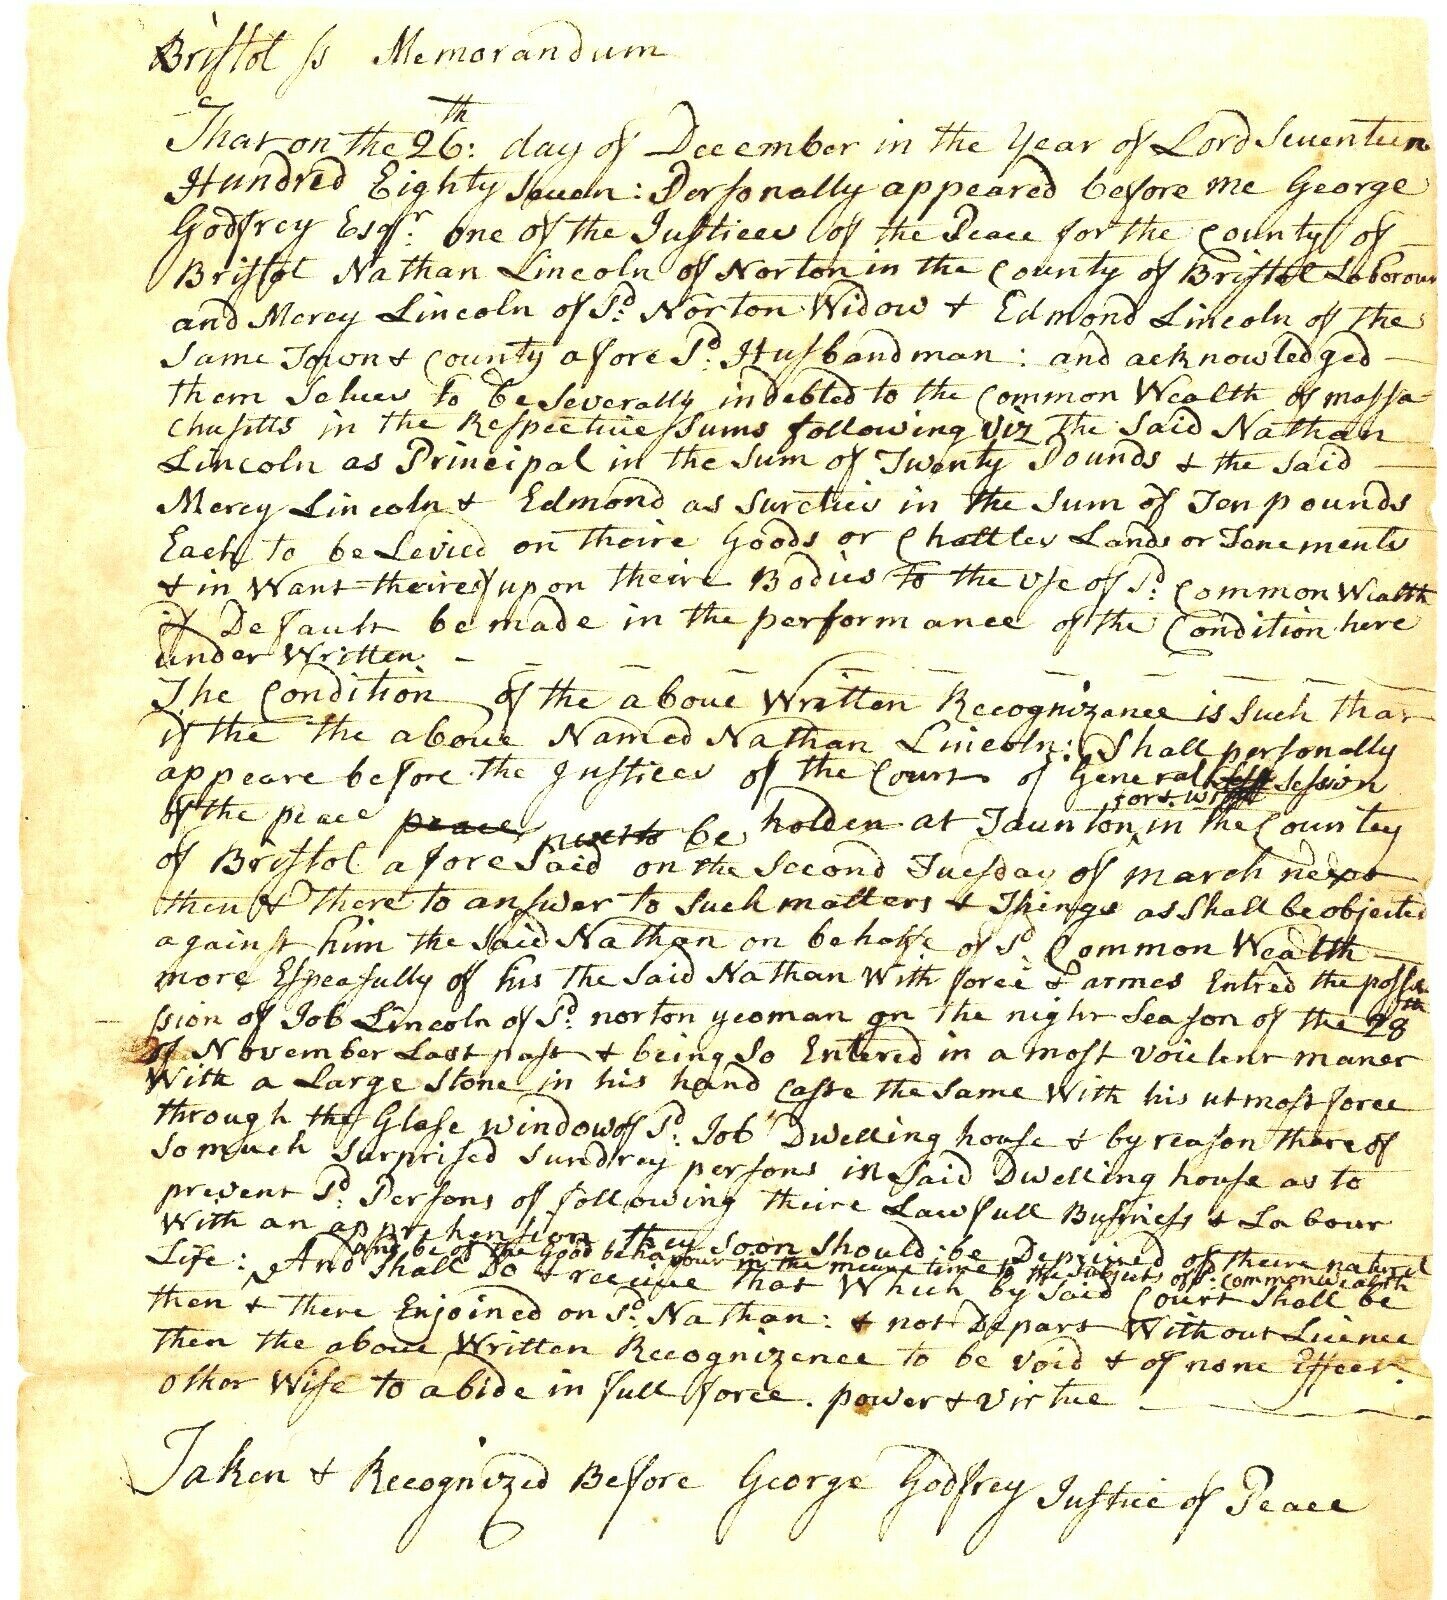 Bristol ss Memorandum
That on the 26th: day of December in the Year of Lord Seventeen
Hundred Eighty Seven: Personally appeared before me George
Godfrey Esqr. one of the Justices of the Peace for the County of
Bristol Nathan Lincoln of Norton in the County of Bristol Laborour
and Mercy Lincoln of sd. Norton Widow & Edmond Lincoln of the
Same Town & County afore sd. Husbandman: and acknowledged
them Selves To be Severally indebted to the Common Wealth of massa
chusitts in the Respective Sums following viz the Said Nathan
Lincoln as Principal in the Sum of Twenty Pounds & the Said
Mercy Lincoln & Edmond as Sureties in the Sum of Ten pounds
Each to be Levied on theire Goods or Chattles Lands or Tenements
& in Want theireof upon theire Bodies To the use of sd. Common Wealth
if Default be made in the performance of the Condition here
under Written
The Condition of the above Written Recognizence is Such that
if the the above Named Nathan Lincoln: Shall personally
appeare before the Justices of the Court of General session
of the peace peace next to be holden at Taunton in the County
of Bristol afore Said on the Second Tuesday of march next
then & There to answer to Such matters & Things as Shall be objected
against him the Said Nathan on behalfe of sd. Common Wealth
more Espesally of his the Said Nathan With force & armes Entred the posse
ssion of Job Lincoln of sd. norton yeoman on the night Season of the 28th
of November Last past & being So Entered in a most voielent maner
With a Large Stone in his hand Caste the Same With his utmost force
through the Glase window of sd. Job Dwelling house & by reason there of
So much Surprised Sundrey persons in Said Dwelling house as to
prevent sd. Persons of following theire Lawfull Business & Labour
With an apprehension they Soon Should be Deprived of theire naturel
and be of the good behavour in the meane time to the Subjects of sd. Commonwealth
Life: And Shall Do & receive that Which by Said Court Shall be
then & there Enjoined on sd. Nathan: & not Depart Without Licence
then the above Written Recognizence to be void & of none Effect.
other Wise to abide in full force. power & virtue
Taken & Recognized Before George Godfrey Justice of Peace